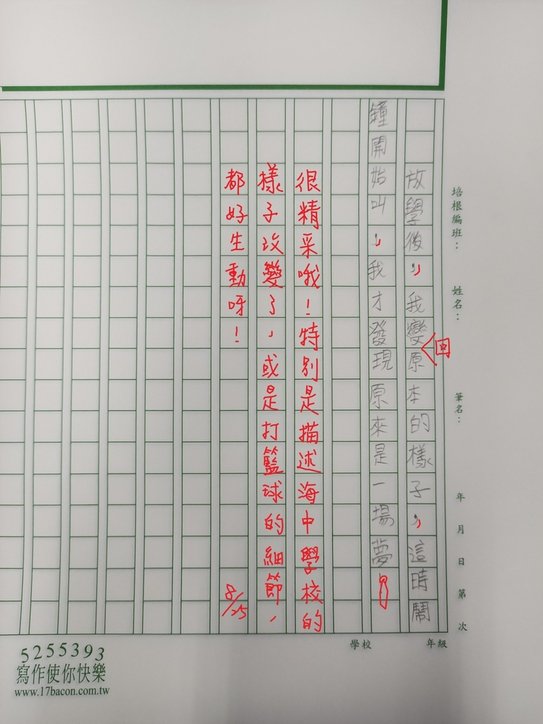 培根編班：　姓名：　筆名：　年　月　日　第　次
放學後，我變原本的樣子，這時鬧
回
鐘開始叫，我才發現原來是一場夢！
很精采哦！特別是描述海中學校的
樣子改變了，或是打籃球的細節，
都好生動呀！
8/25
學校　年級
5255393
寫作使你快樂
www.17bacon.com.tw